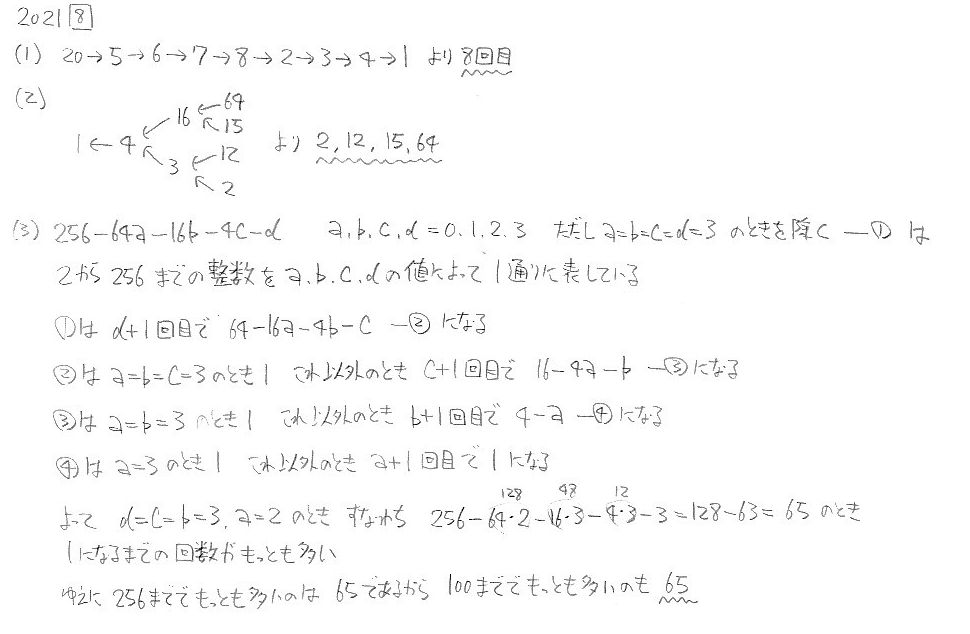 2021 8
(1) 20→5→6→7→8→2→3→4→1 より 8回目
(2)
16 ← 64
1 ← 4 ← 15
3 ← 12 より 2, 12, 15, 64
2
(3) 256-64a-16b-4c-d a,b,c,d=0.1.2.3 ただしa=b=c=d=3のときを除く —① は
2から256までの整数をa.b.c.dの値によって1通りに表している
①は d+1回目で 64-16a-4b-c —② になる
②は a=b=c=3のとき1 これ以外のとき c+1回目で 16-4a-b —③になる
③は a=b=3のとき1 これ以外のとき b+1回目で 4-a —④になる
④は a=3のとき1 これ以外のとき a+1回目で1になる
128 48 12
よって d=c=b=3, a=2のとき すなわち 256-64・2-16・3-4・3-3=128-63=65 のとき
1になるまでの回数がもっとも多い
ゆえに 256まででもっとも多いのは 65であるから 100まででもっとも多いのも 65